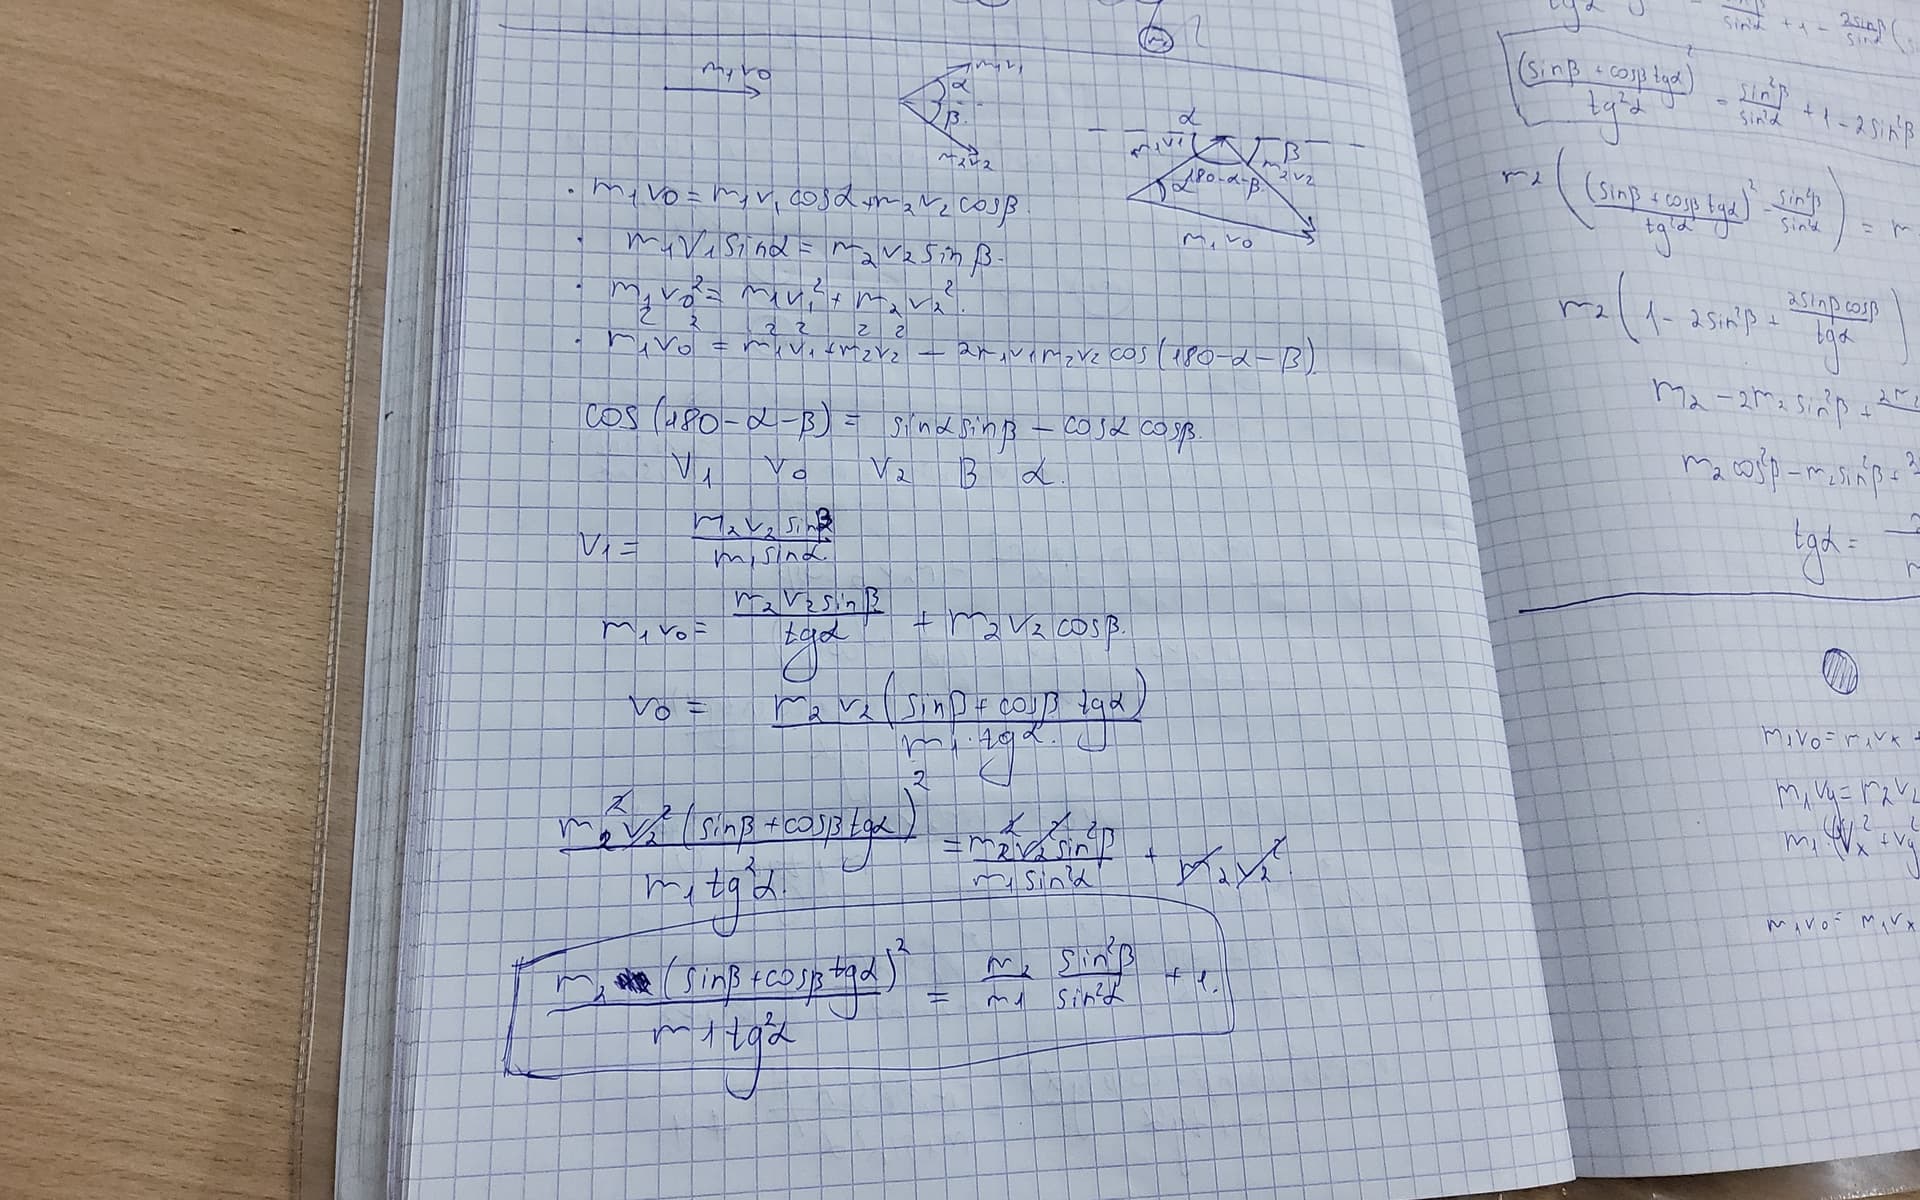 m₁v₀
m₁v₁
α
β
m₂v₂
α
m₁v₁
β
m₂v₂
180-α-β
α
m₁v₀
· m₁v₀ = m₁v₁cosα + m₂v₂cosβ.
· m₁v₁sinα = m₂v₂sinβ.
· m₁v₀² = m₁v₁² + m₂v₂².
· m₁²v₀² = m₁²v₁² + m₂²v₂² - 2m₁v₁m₂v₂cos(180-α-β).
cos(180-α-β) = sinαsinβ - cosαcosβ.
v₁ v₀ v₂ β α.
v₁ = m₂v₂sinβ / m₁sinα.
m₁v₀ = m₂v₂sinβ / tgα + m₂v₂cosβ.
v₀ = m₂v₂(sinβ + cosβ tgα) / m₁·tgα.
m₂²v₂²(sinβ + cosβ tgα)² / m₁tg²α. = m₂²v₂²sin²β / m₁sin²α + m₂v₂².
m₂(sinβ + cosβ tgα)² / m₁tg²α = m₂/m₁ sin²β/sin²α + 1.
sin²α + 1 - 2sinβ / sinα (
(sinβ + cosβ tgα)² / tg²α = sin²β / sin²α + 1 - 2sin²β
m₂((sinβ + cosβ tgα)² / tg²α - sin²β / sin²α) = m
m₂(1 - 2sin²β + 2sinβcosβ / tgα)
m₂ - 2m₂sin²β + 2m₂
m₂cos²β - m₂sin²β + 2
tgα =
m₁v₀ = m₁vₓ +
m₁vy = m₂v₂
m₁(vₓ² + vy²
m₁v₀ = m₁vₓ